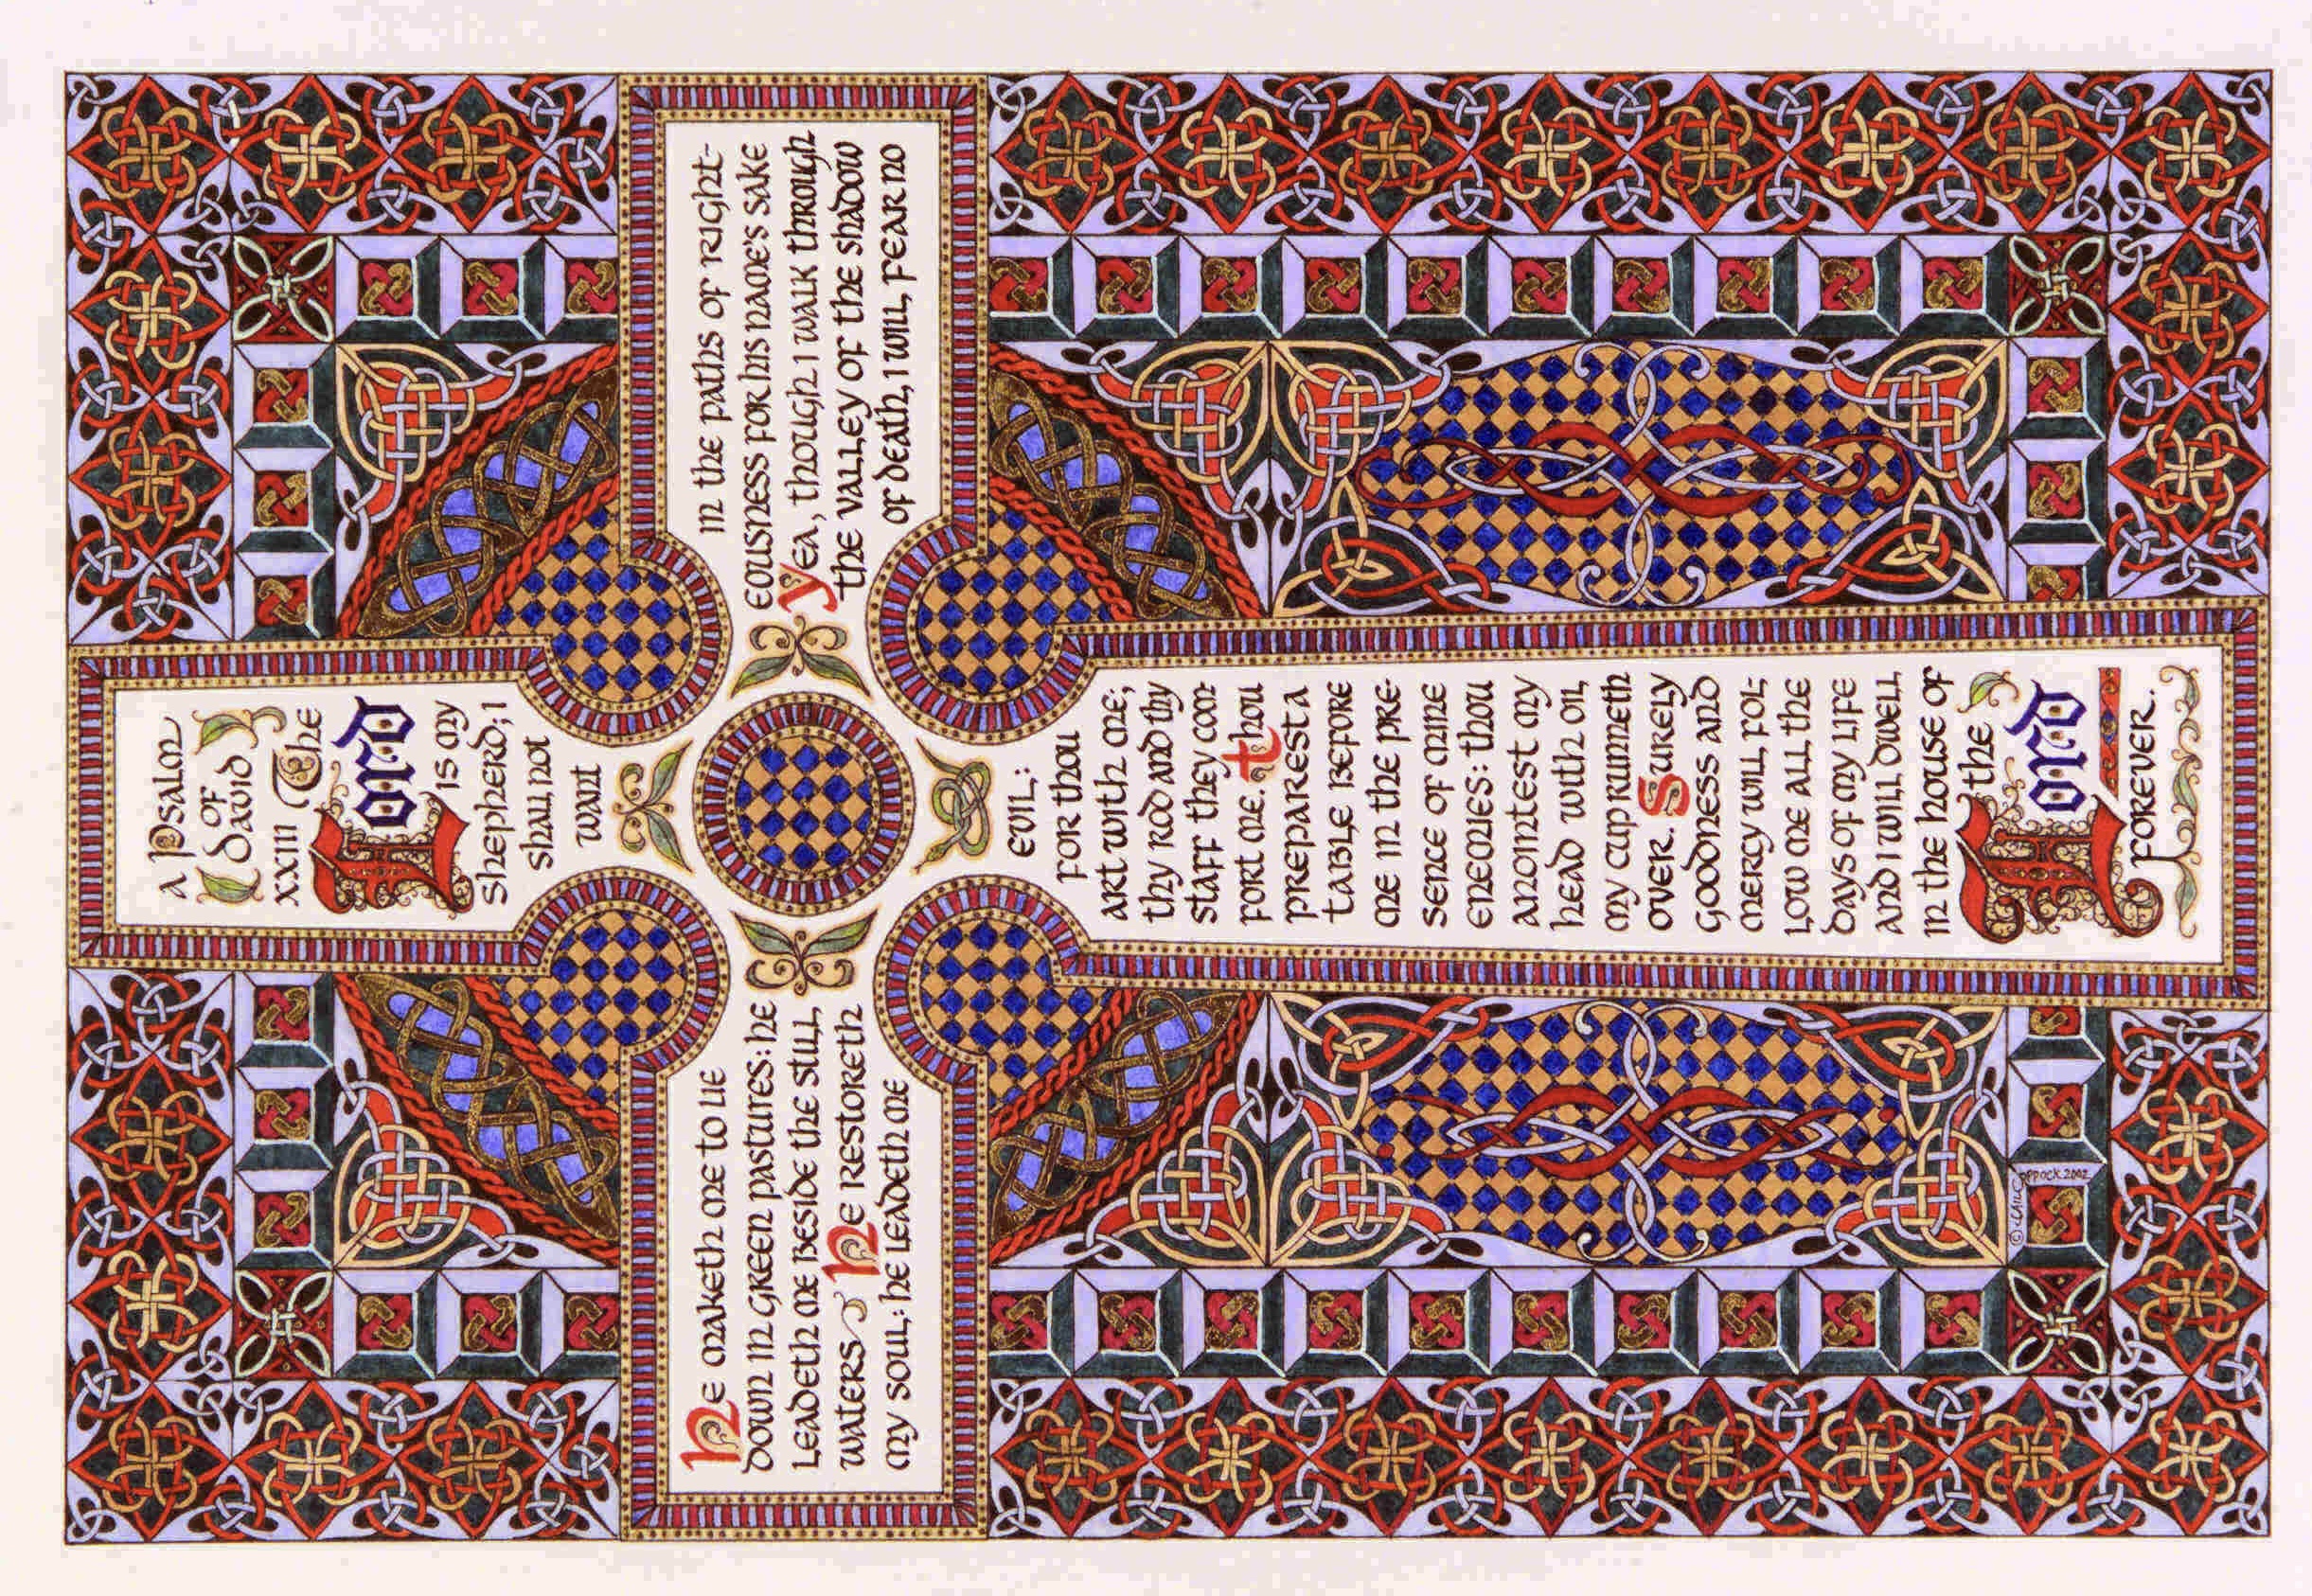 A Psalm
of
David
XXIII The
Lord
is my
shepherd; I
shall not
want
He maketh me to lie
down in green pastures: he
leadeth me beside the still
waters He restoreth
my soul: he leadeth me
in the paths of right-
eousness for his name's sake
Yea, though I walk through
the valley of the shadow
of death, I will fear no
evil:
for thou
art with me;
thy rod and thy
staff they com-
fort me. Thou
preparest a
table before
me in the pre-
sence of mine
enemies: thou
anointest my
head with oil,
my cup runneth
over. Surely
goodness and
mercy will fol-
low me all the
days of my life
and I will dwell
in the house of
the
Lord
forever.
© Gail Coppock 2002